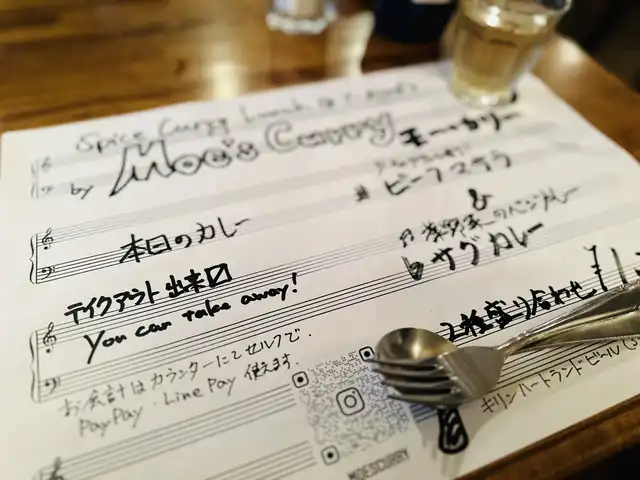 Spice Curry Lunch @
by Moe's Curry モーカリー
本日のカレー
ビーフマサラ
&
サグカレー
テイクアウト出来〼
You can take away!
2種盛り合わせ ¥1
お会計はカウンターにてセルフで.
PayPay・Line Pay 使えます.
キリンハートランドビール
MOESCURRY